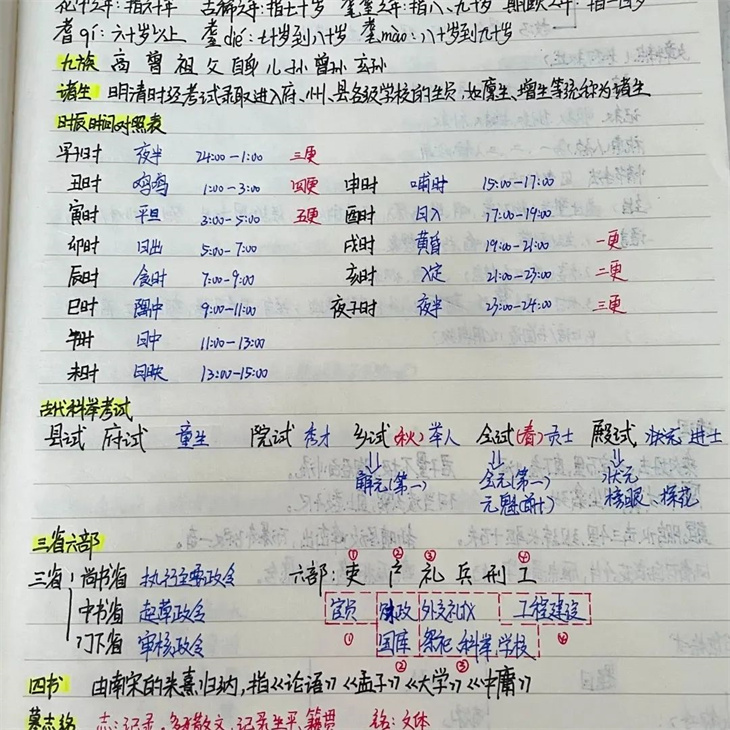 花甲之年:指六十年 古稀之年:指七十岁 耄耋之年:指八、九十岁 期颐之年:指一百岁
耆qí:六十岁以上 耋dié:七十岁到八十岁 耄mào:八十岁到九十岁
九族 高 曾 祖 父 自身 儿 孙 曾孙 玄孙
诸生 明清时经考试录取进入府、州、县各级学校的生员,如廪生、增生等统称为诸生
时辰时间对照表
早子时 夜半 24:00-1:00 三更
丑时 鸡鸣 1:00-3:00 四更 申时 哺时 15:00-17:00
寅时 平旦 3:00-5:00 五更 酉时 日入 17:00-19:00
卯时 日出 5:00-7:00 戌时 黄昏 19:00-21:00 一更
辰时 食时 7:00-9:00 亥时 人定 21:00-23:00 二更
巳时 隅中 9:00-11:00 夜子时 夜半 23:00-24:00 三更
午时 日中 11:00-13:00
未时 日昳 13:00-15:00
古代科举考试
县试 府试 童生 院试 秀才 乡试(秋)举人 会试(春)贡士 殿试 状元 进士
解元(第一) 会元(第一) 状元
元魁(前十) 榜眼、探花
三省六部
① ② ③ ④
三省:尚书省 执行主要政令 六部:吏 户 礼 兵 刑 工
中书省 起草政令 官员 财政 外交礼仪 工程建设
门下省 审核政令 ① 国库 祭祀 科举 学校 ④
② ③
四书 由南宋的朱熹归纳,指《论语》《孟子》《大学》《中庸》
墓志铭 志:记录,多为散文,记录生平、籍贯 铭:文体